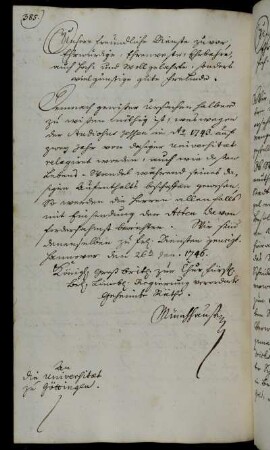 385.
Unsere freundliche Dienste zuvor,
Ehrwürdige, Ehrenveste, Ehrbahre,
auch Hoch- und Wollgelahrte, sonders
vielgünstige gute Freunde.
Demnach gewisser Ursachen halber
zu wißen nöthig ist, weswegen
der Studiosus in Ao 1743. auf
zwey Jahr von dasiger Universitaet
relegiret worden, auch wie deßen
Lebens-Wandel während seines da-
sigen Aufenthalts beschaffen gewesen,
So werden die Herren allenfalls
mit Einsendung der Acten davon
fordersahmst berichten. Wir sind
denenselben zu Dienste geneigt.
Hannover den 26ten Jan. 1746.
Königl. Groß-Britt. zur Churfürstl.
Braunschw. Lüneb. Regierung verordnete
Geheimte Räthe.
Münchhausen
An
die Universitaet
zu Göttingen.